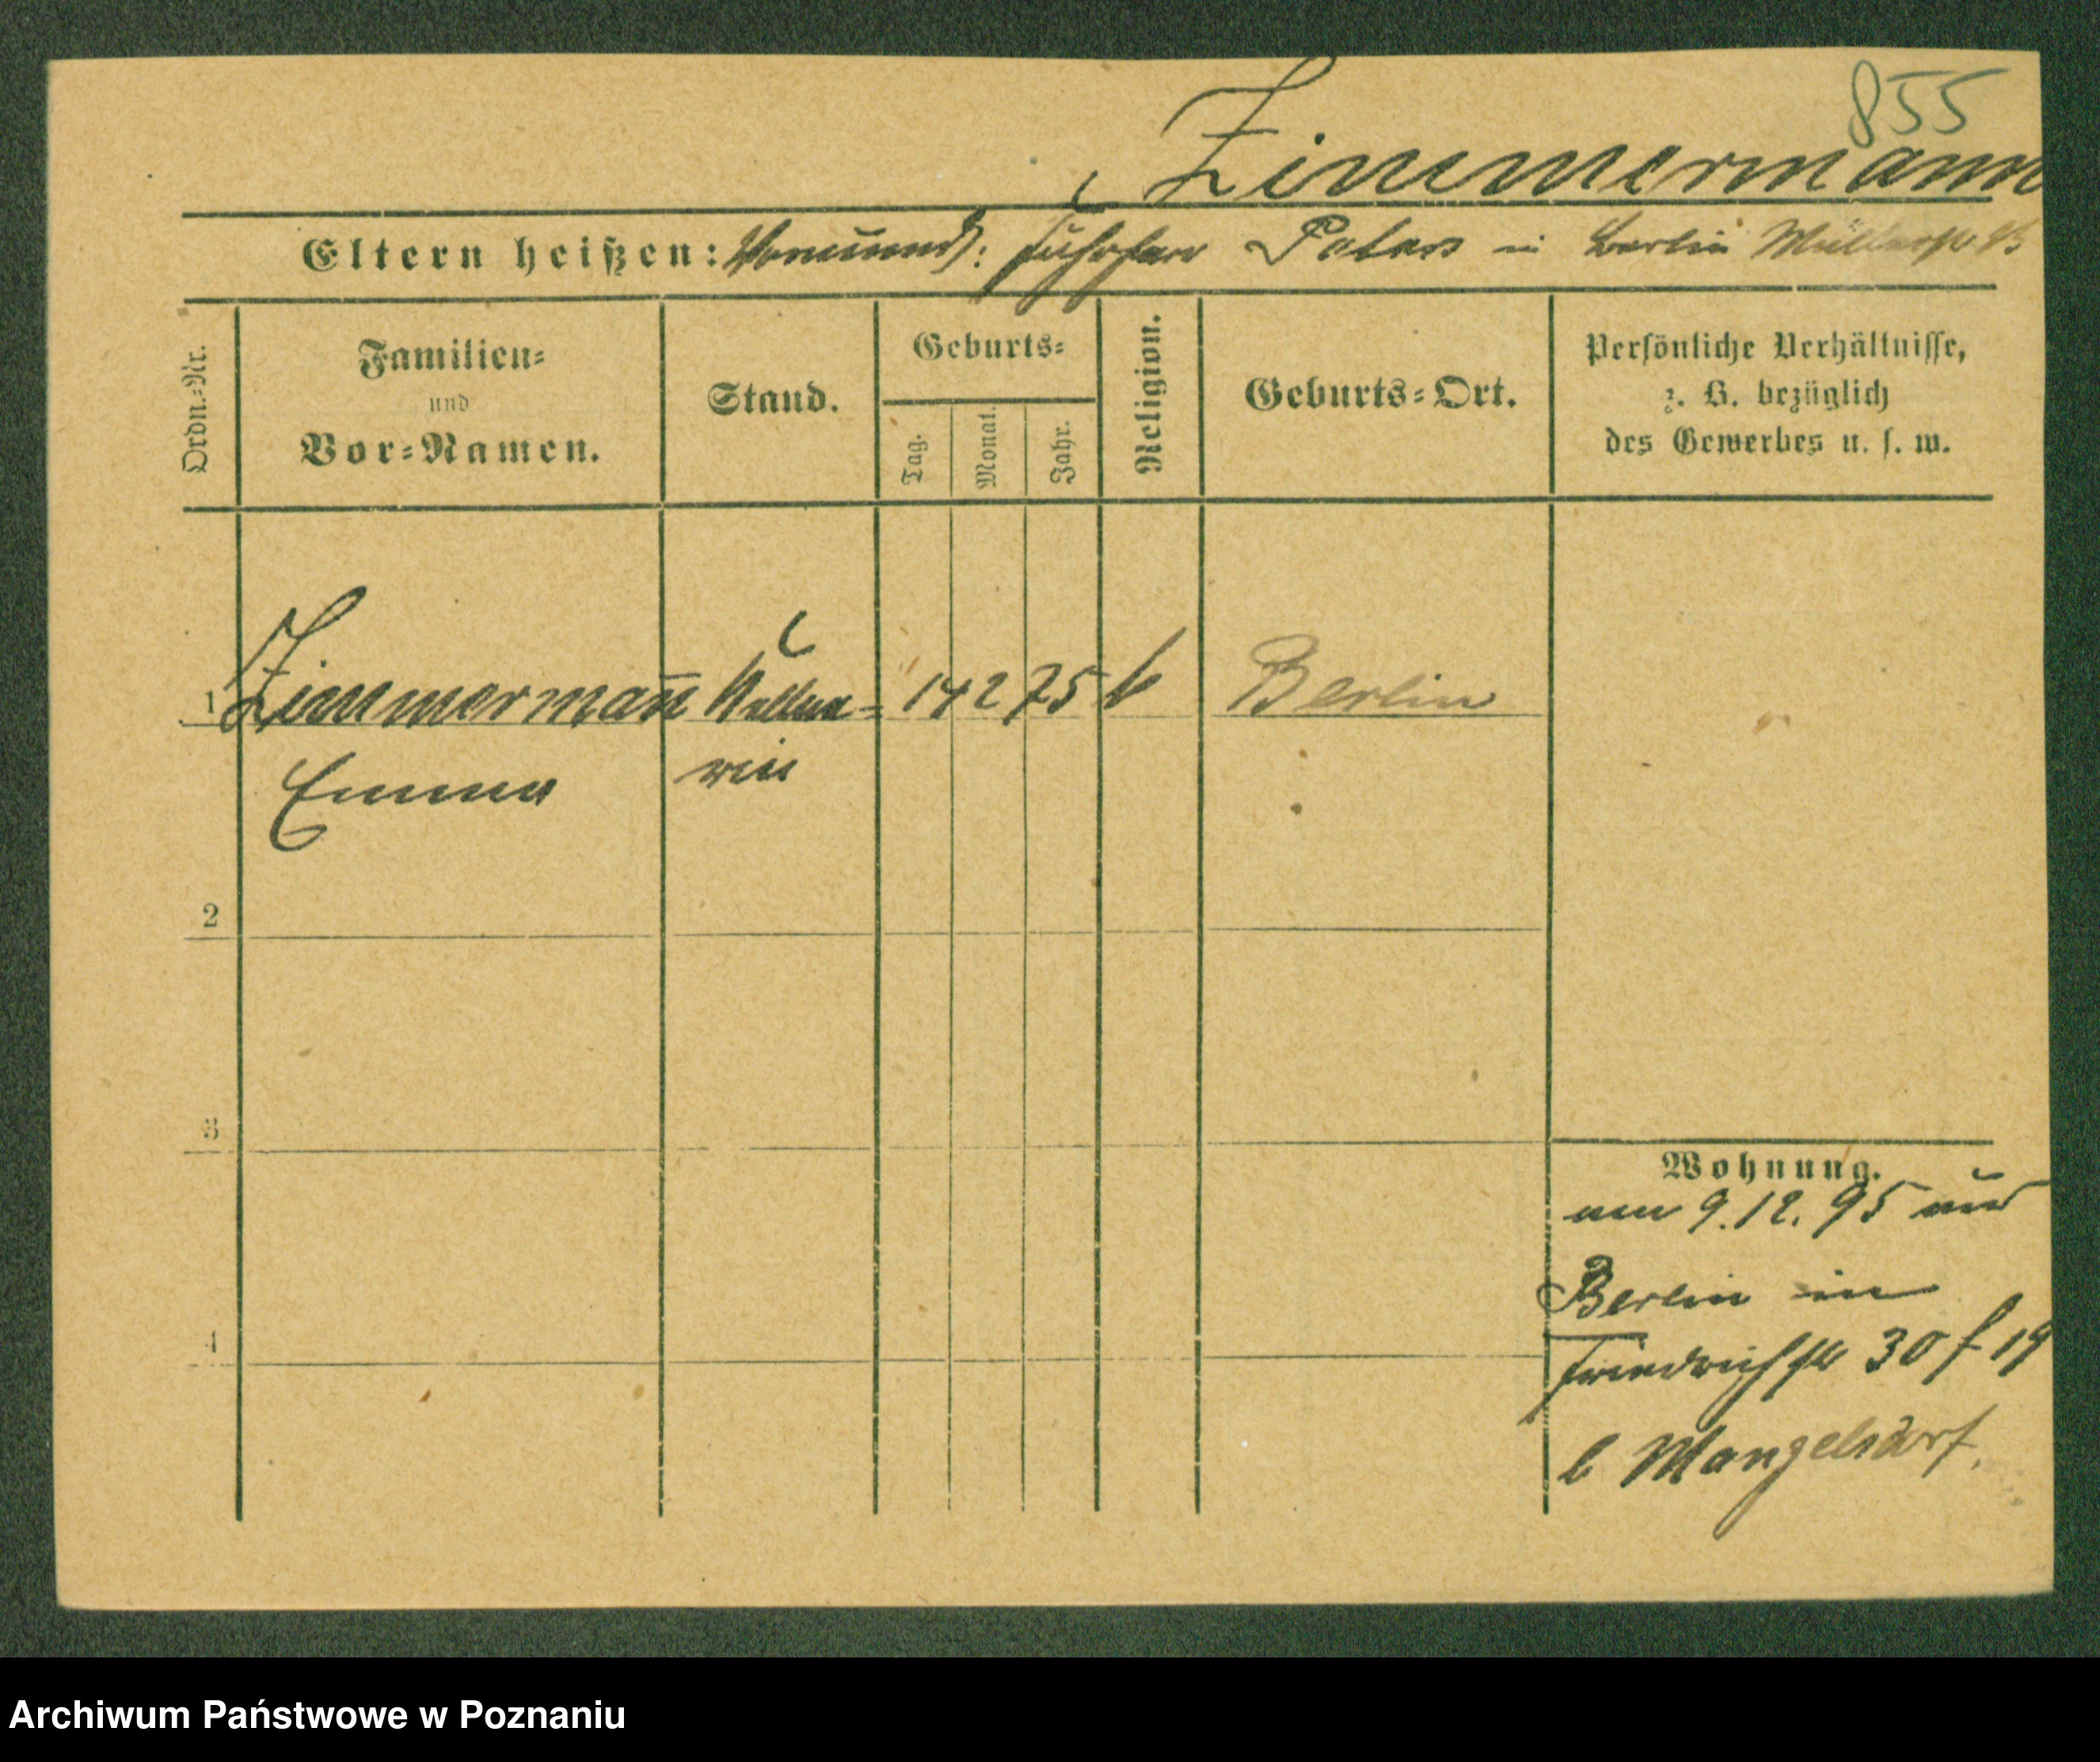 855
Zimmermann
Eltern heißen: Vormund: Fuhrherr Peters in Berlin Müllerstr
Ordn.-Nr.
Familien- und Vor-Namen.
Stand.
Geburts-
Tag.
Monat.
Jahr.
Religion.
Geburts-Ort.
Persönliche Verhältnisse,
z. B. bezüglich
des Gewerbes u. s. w.
1 Zimmermañ Kellne- 14 2 75 Berlin
Emma rin
2
3
4
Wohnung.
am 9.12.95 aus
Berlin in
Friedrichstr 30 f 19
b Mangelsdorf.
Archiwum Państwowe w Poznaniu